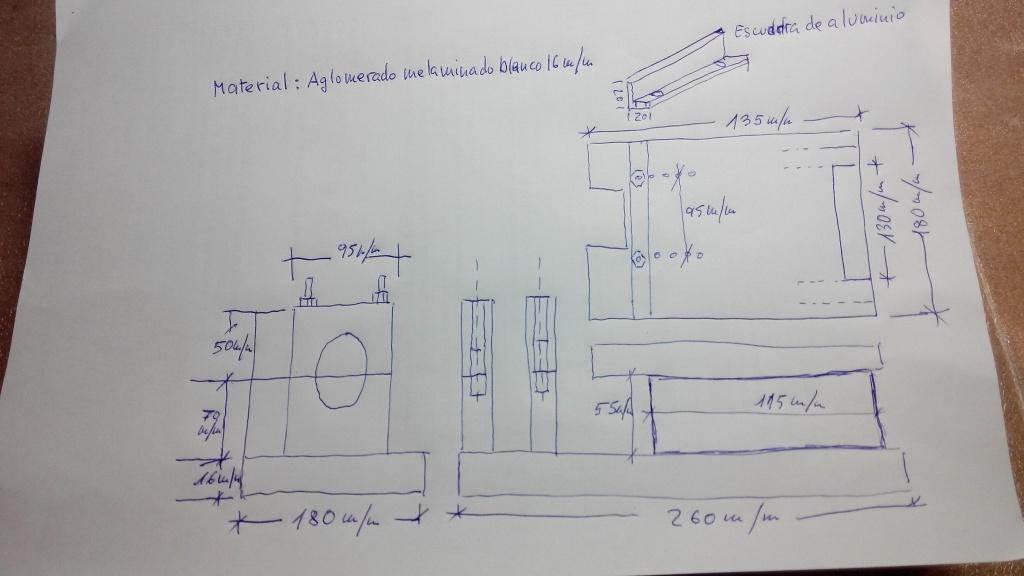 Escuadra de aluminio
Material: Aglomerado melaminado blanco 16 m/m
10
20
135 m/m
95 m/m
130 m/m
180 m/m
95 m/m
50 m/m
70 m/m
16 m/m
180 m/m
55 m/m
115 m/m
260 m/m